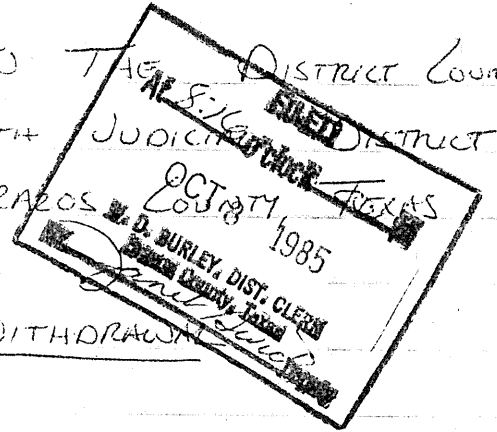 THE DISTRICT COUR
TH JUDICIAL DISTRICT
RAZOS COUNTY, TEXAS
WITHDRAWAL
FILED
At 8: o'clock M
OCT 8 1985
M. D. BURLEY, DIST. CLERK
Brazos County, Texas
By Janet
Deputy